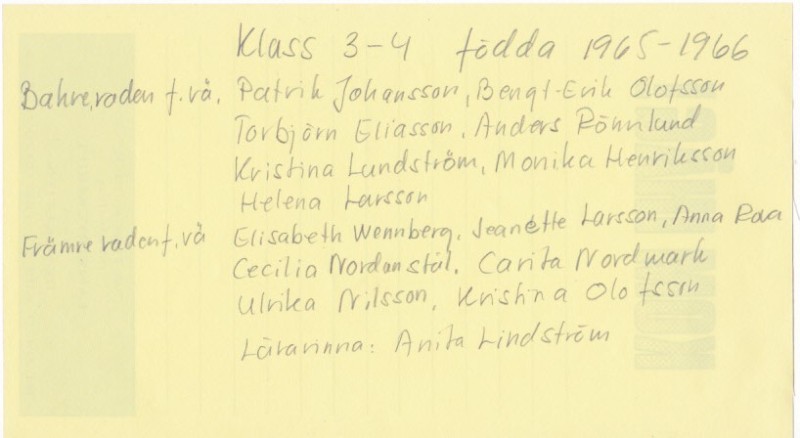 Klass 3-4 födda 1965-1966
Bakre raden f.vä. Patrik Johansson, Bengt-Erik Olofsson
Torbjörn Eliasson, Anders Rönnlund
Kristina Lundström, Monika Henriksson
Helena Larsson
Främre raden f.vä Elisabeth Wennberg, Jeanette Larsson, Anna
Cecilia Nordanstål, Carita Nordmark
Ulrika Nilsson, Kristina Olofsson
Lärarinna: Anita Lindström